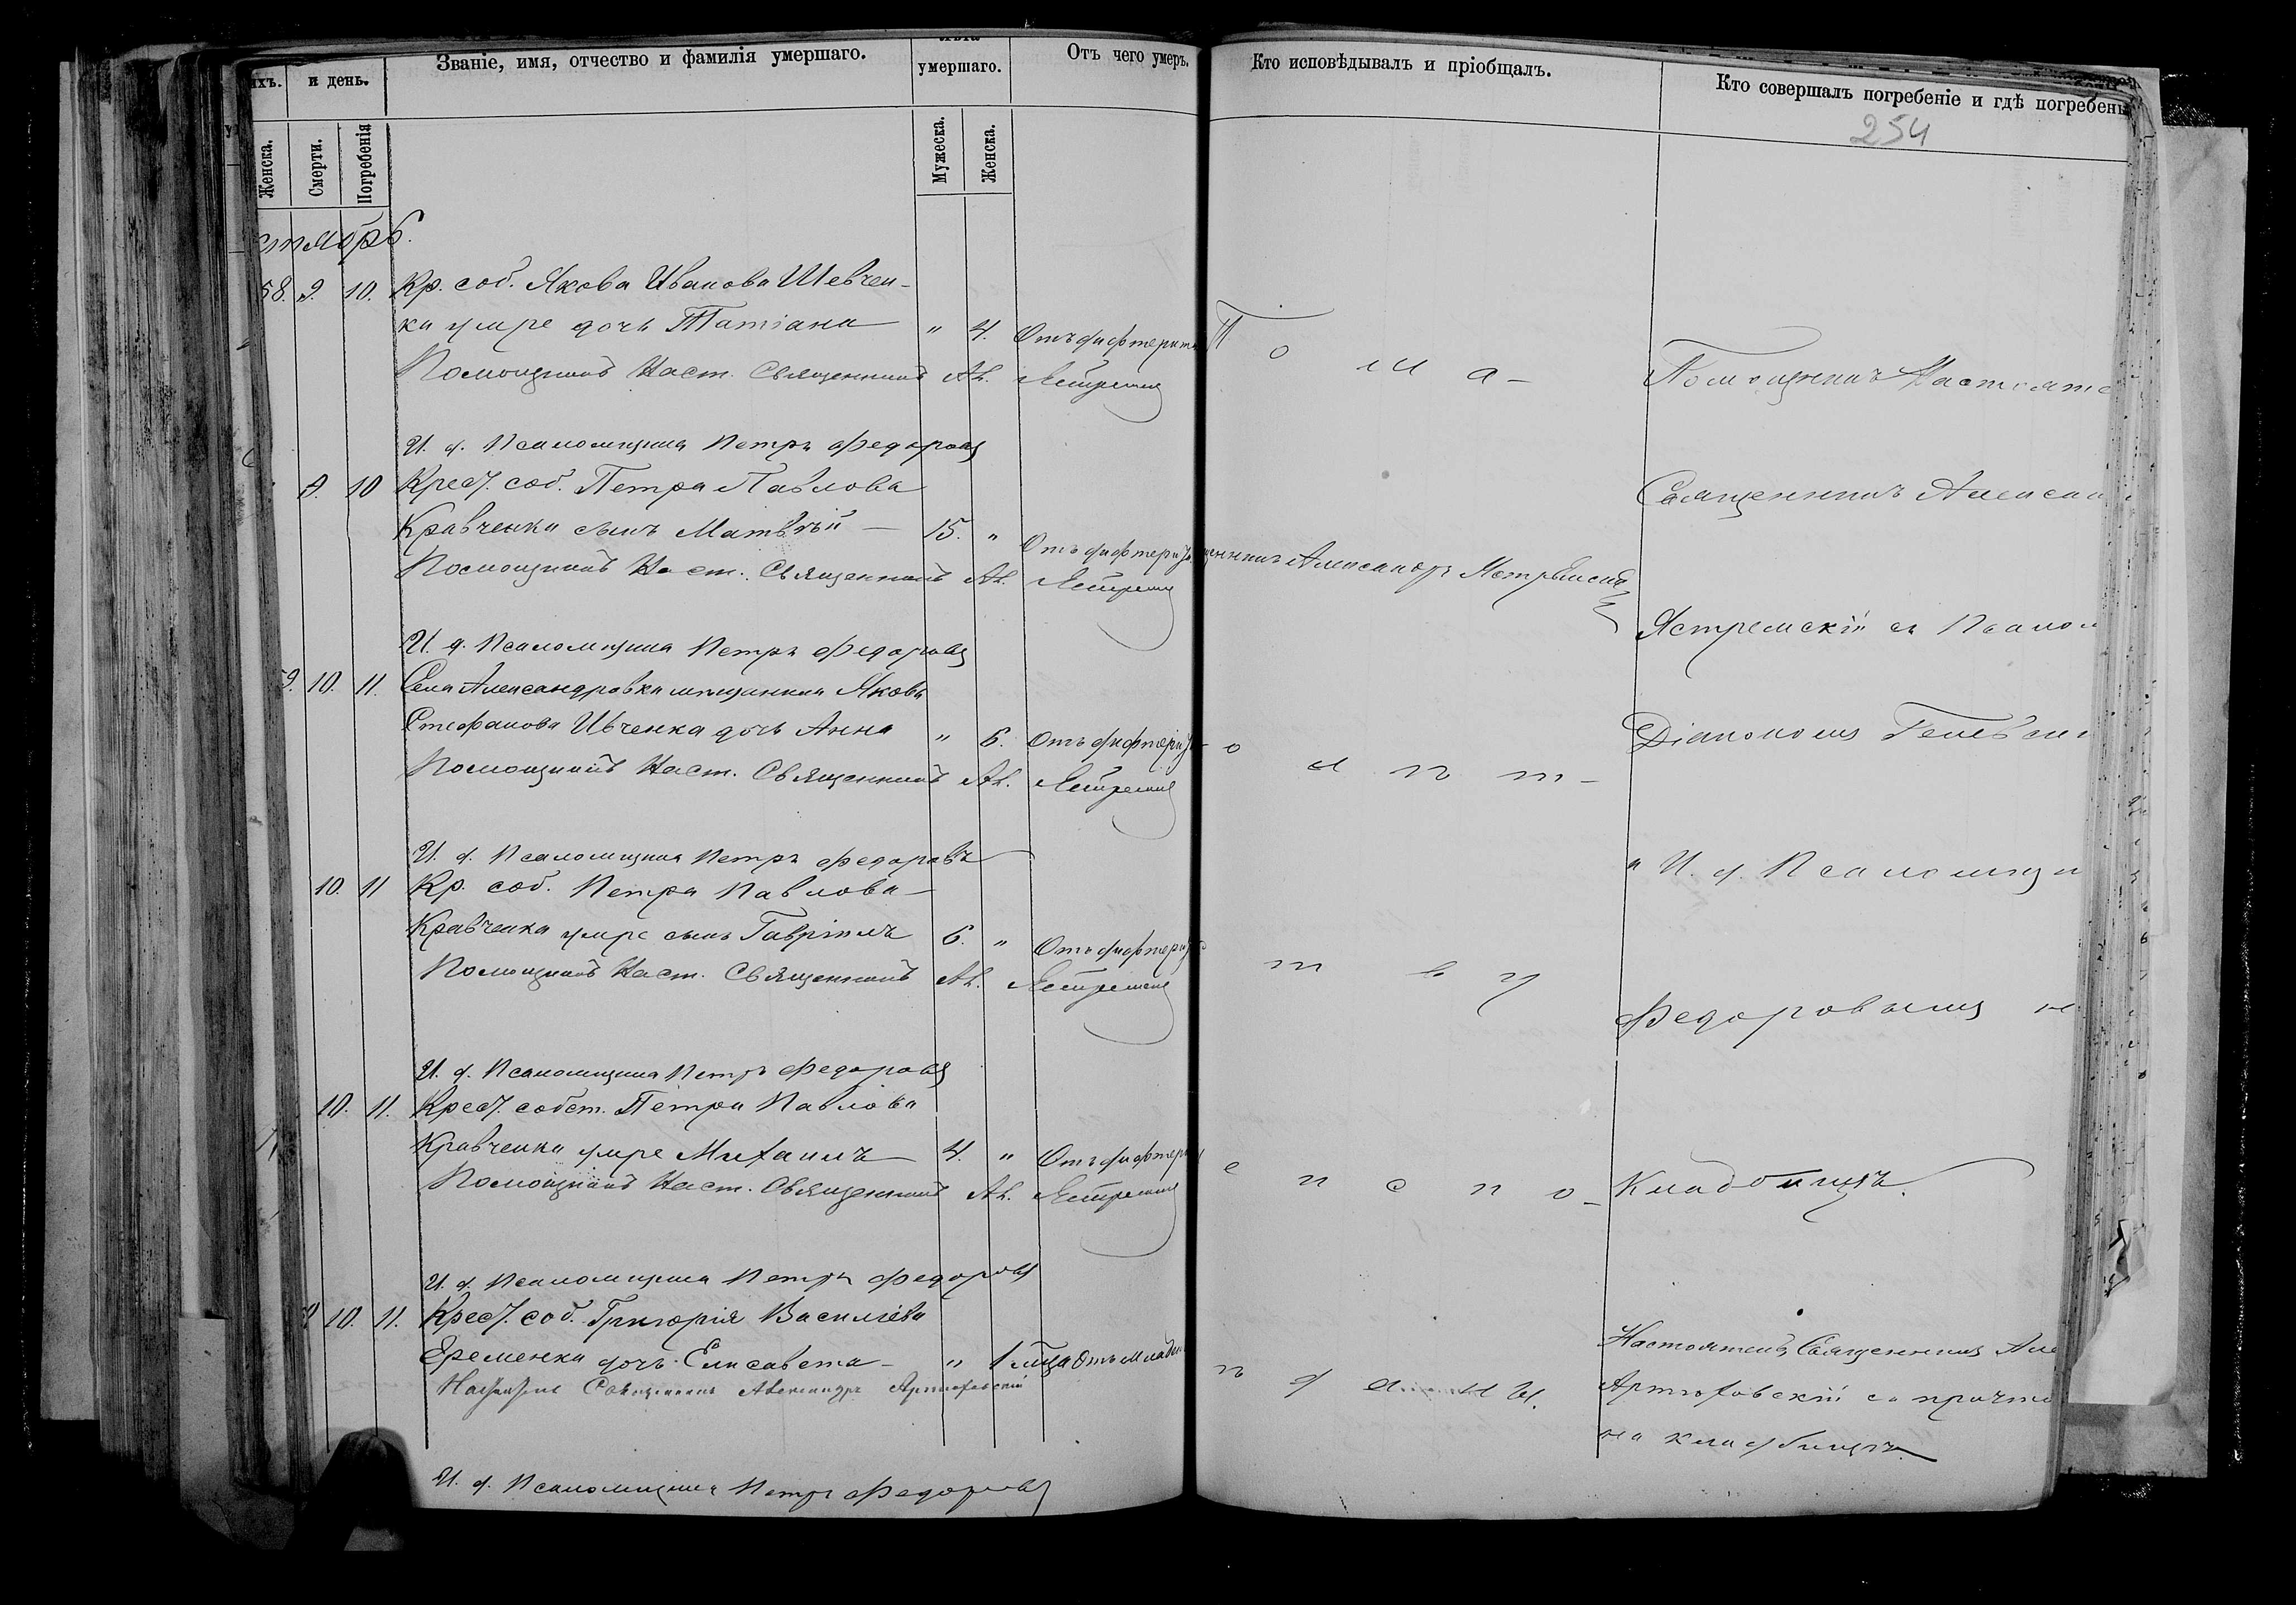 ихъ. и день. Званіе, имя, отчество и фамилія умершаго. умершаго. Отъ чего умеръ. Кто исповѣдывалъ и пріобщалъ. Кто совершалъ погребеніе и гдѣ погребены
254
Женска. Смерти. Погребенія Мужеска. Женска.
58. 9. 10. Кр. соб. Якова Иванова Шевчен-
ка умре дочь Татіана " 4. Отъ дифтерита
Помощникъ Наст. Священникъ Ал. Ястремскій
Помощникъ Настояте
И. д. Псаломщика Петръ Федоровъ
9. 10 Крест. соб. Петра Павлова
Священникъ Алексан
Кравченка сынъ Матвѣй — 15. " Отъ дифтерит
Помощникъ Наст. Священникъ Ал. Ястремскій
щенникъ Александръ Ястремскій
Ястремскій съ Псалом
И. д. Псаломщика Петръ Федоровъ
9. 10. 11. Села Александровки мѣщанина Якова
Стефанова Ивченка дочь Анна " 6. Отъ дифтерит
Діакономъ
Помощникъ Наст. Священникъ Ал. Ястремскій
И. д. Псаломщика Петръ Федоровъ
и И. д. Псаломщи
10. 11 Кр. соб. Петра Павлова
Кравченка умре сынъ Гавріилъ 6. " Отъ дифтерит
Помощникъ Наст. Священникъ Ал. Ястремскій
Федоровымъ на
И. д. Псаломщика Петръ Федоровъ
10. 11. Крест. собст. Петра Павлова
Кравченка умре Михаилъ 4. " Отъ дифтер
Помощникъ Наст. Священникъ Ал. Ястремскій
Кладбищѣ.
И. д. Псаломщика Петръ Федоровъ
10. 11. Крест. соб. Григорія Васильева
Еременка дочь Елисавета — " 1 мѣсяца Отъ младен
Настоятель Священникъ Александръ Артюховскій
Настоятель Священникъ Але
Артюховскій съ причто
на кладбищѣ.
И. д. Псаломщика Петръ Федоровъ